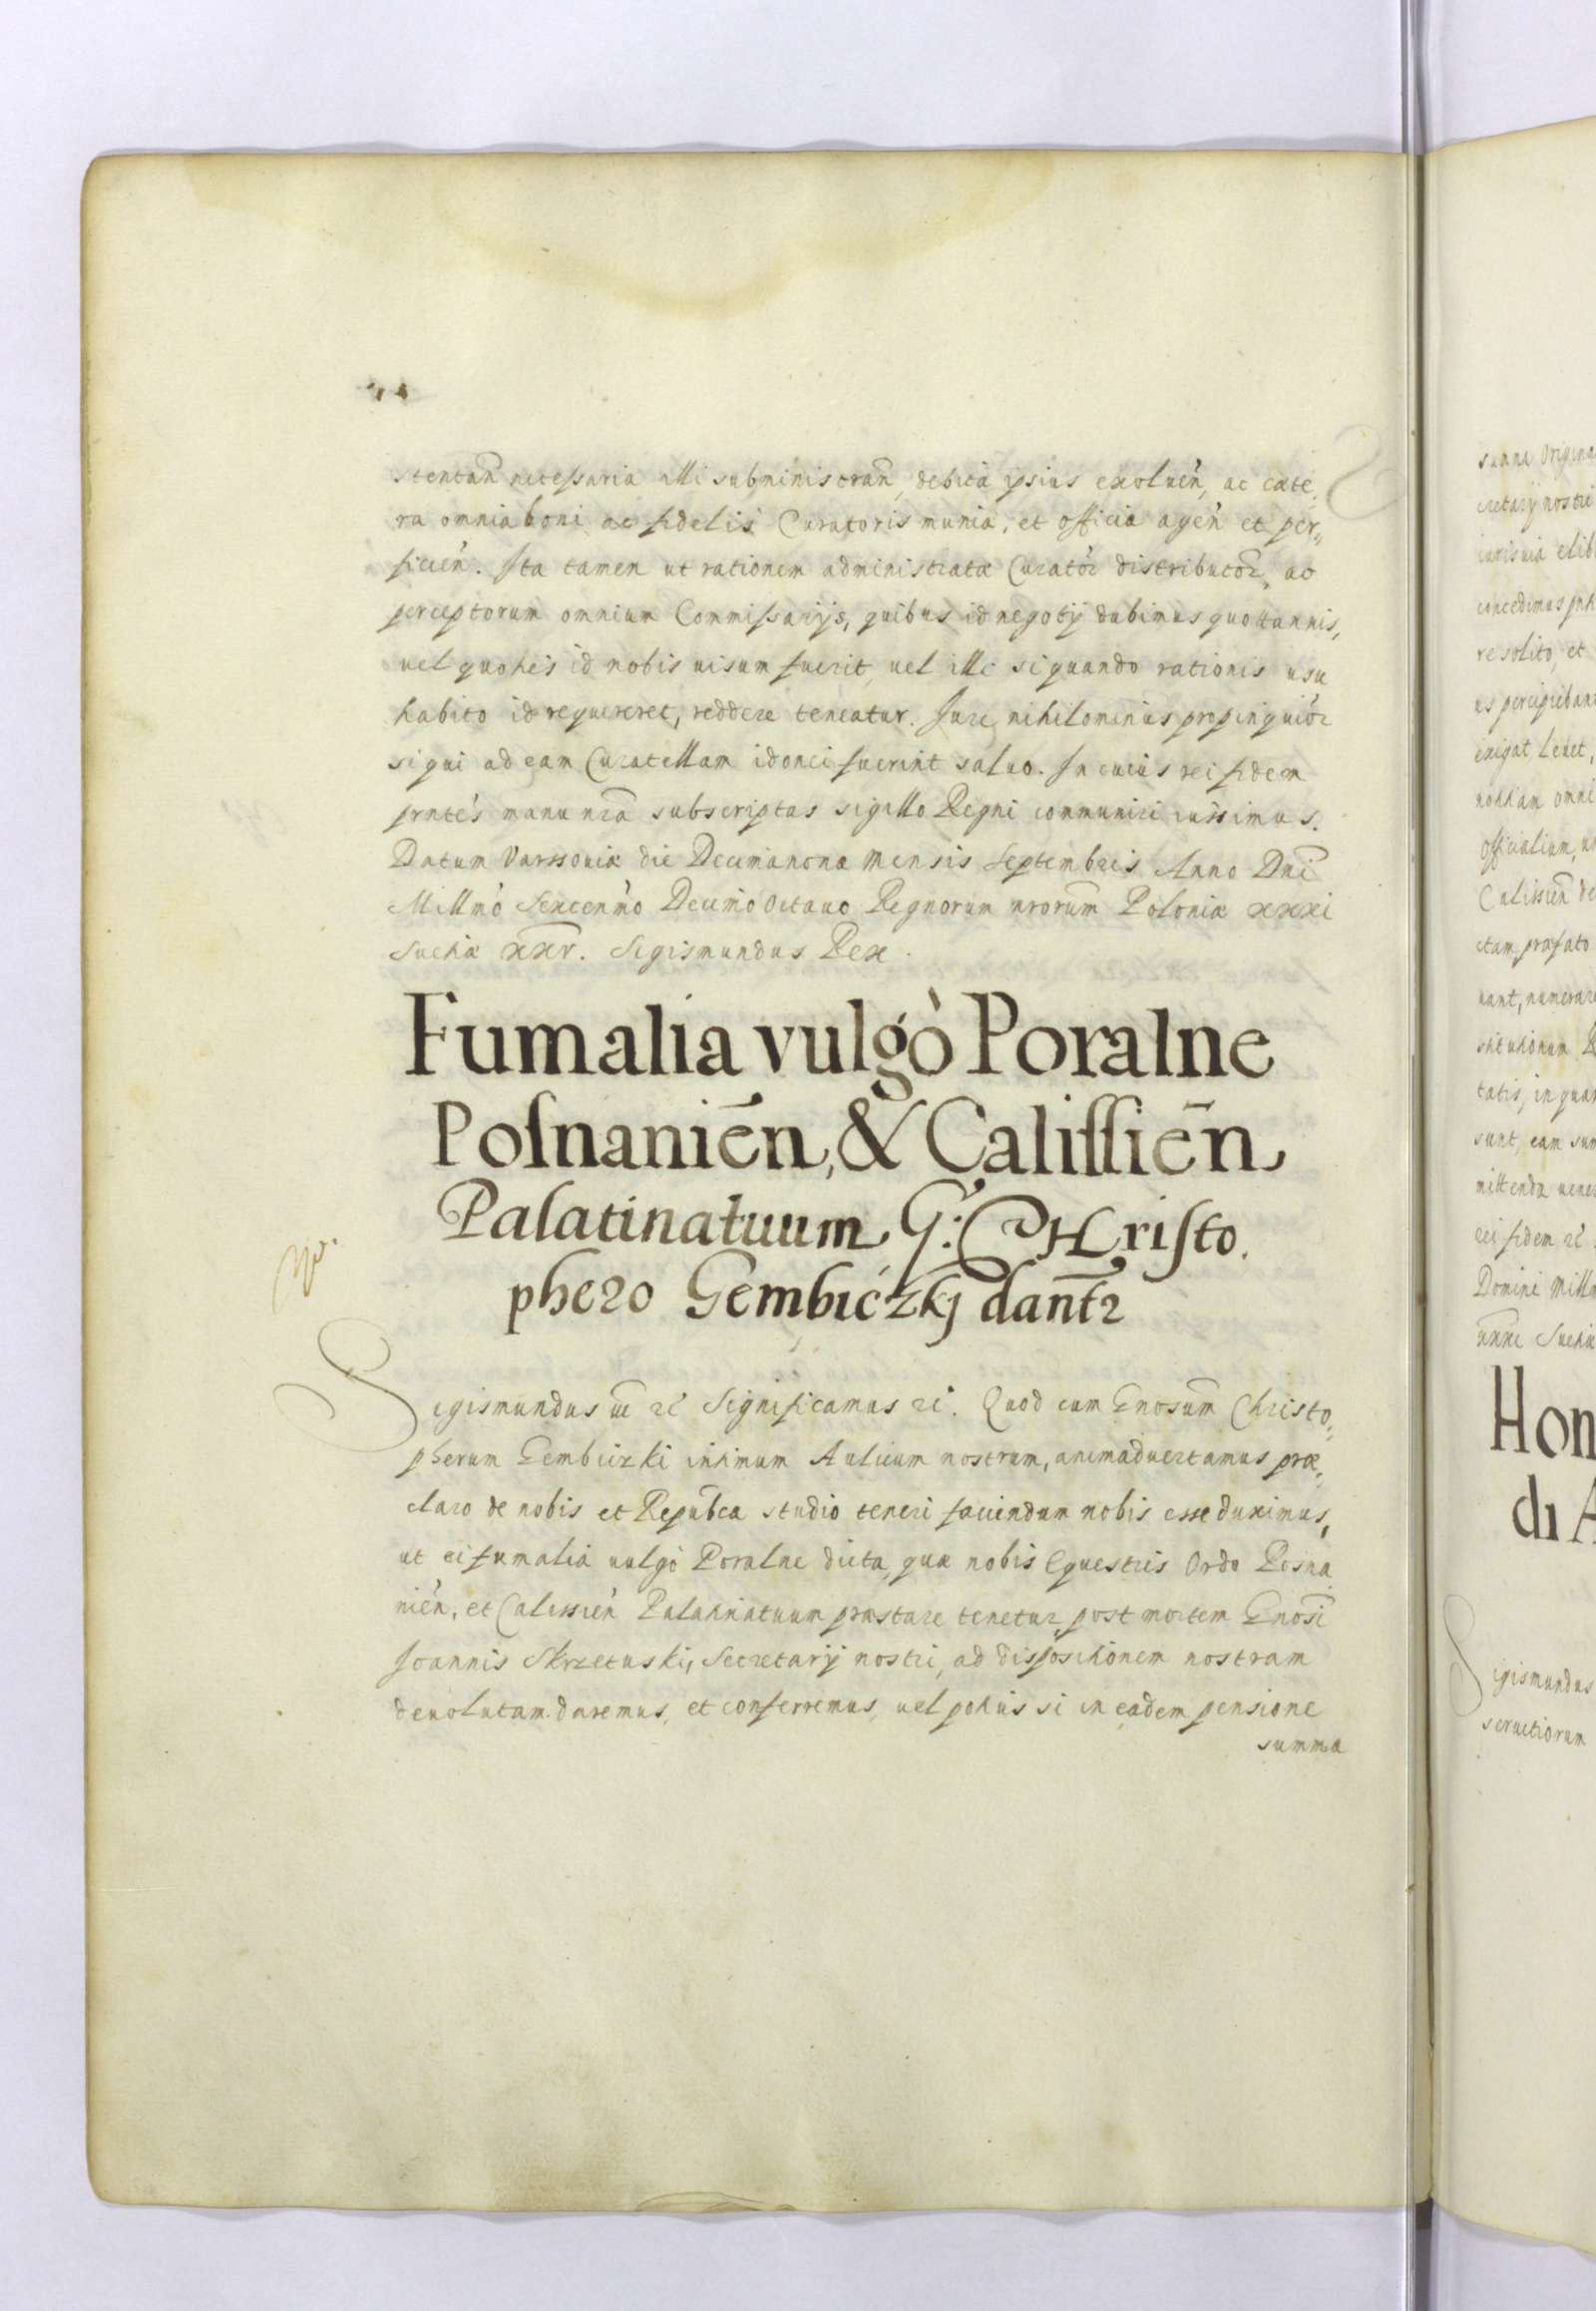 stentan̄ necessaria illi subministran̄, debita ipsius exoluen̄, ac cæte,
ra omnia boni ac fidelis Curatoris munia, et officia agen̄ et per„
ficien̄. Ita tamen ut rationem administratæ Curator̄ distributor̄, ac
perceptorum omnium Commissarijs, quibus id negotij dabimus quottannis,
uel quoties id nobis uisum fuerit, uel illi si quando rationis usu
habito id requireret, reddere teneatur. Iure nihilominus propinquior̄
si qui ad eam Curatellam idonei fuerint saluo. In cuius rei fidem
prnte's manu nrā subscriptas sigillo Regni communiri iussimus.
Datum Varssouiæ die Decimanona Mensis Septembris Anno Dnī
Millmo Sexcenmo Decimo Octauo Regnorum nrorum̄ Poloniæ xxxi
Sueciæ xxv. Sigismundus Rex.
Fumalia vulgò Poralne
Poſnaniēn, & Caliſſiēn
Palatinatuum G: CHriſto.
phero Gembiczkj dant̄r
Sigismundus iii rc Significamus rc. Quod cum Gnosum̄ Christo„
pherum Gembiczki intimum Aulicum nostrum, animaduertamus præ„
claro de nobis et Repub̄ca studio teneri faciendum nobis esse duximus,
ut ei fumalia uulgò Poralne dicta, quæ nobis Equestris Ordo Posna
nien̄, et Calissien̄ Palatinatuum præstare tenetur, post mortem Gnosi̅
Ioannis Skrzetuski, Secretarij nostri, ad dispositionem nostram
deuolutam daremus, et conferremus, uel potius si in eadem pensione
summa
sunna Origina
cretarij nostri
concedimus
resolito, et
us percipiebant
exigat leuet,
omni
Officialium,
Calissien̄ de
ctam præfato
uant, numerare
tatis, in qua
sunt, eam sum
mittenda uene
rei fidem rc
Domini Mill
Hon
di A
Sigismundus
seruitiorum